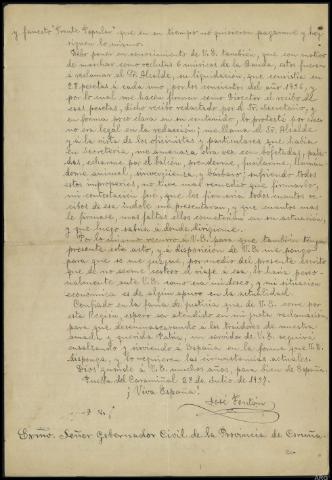 y funesto "Frente Popular" que en su tiempo no quisieron pagarme y hoy
siguen lo mismo.
Debo poner en conocimiento de V.E. también, que con motivo
de marchar como reclutas 6 músicos de la Banda, estos fueron
a reclamar al Sr. Alcalde, su liquidación, que consistía en
28 pesetas á cada uno, por los conciertos del año 1936, y
por lo cual me hacían firmar como Director el recibo de
esas pesetas, dicho recibo redactado por el Sr. Secretario, y
en forma poco clara en su contenido, lo protesté por
no era legal en la redacción; me llama el Sr. Alcalde
y á la vista de los oficinistas y particulares que había
en Secretaría, me amenaza otra vez con bofetadas, pata-
das, echarme por el balcón, prenderme, fusilarme, llamán-
dome animal, sinvergüenza, y bárbaro; sufriendo todos
estos improperios, no tuve mas remedio que firmarlo,
mi contestación fue, que les firmaría todos cuantos re-
cibos de esa índole me presentaran, y que cuantos mas
le firmase, mas faltas ellos cometían en su actuación,
y que luego sabría á donde dirigirme.
Por lo mismo recurro á V.E. para que también tenga
presente este acto, a disposición de V.E. me pongo
para que se me juzgue, por medio del presente escrito
que de no serme costoso el viaje a esa, lo haría perso-
nalmente ante V.E. como era mi deseo, y mi situación
económica es de algún apuro en la actualidad.
Confiado en la fama de justicia que de V.E. corre por
esta Región, espero ser atendido en mi justa reclamación,
para que desenmascarando á los traidores de nuestra
amada y querida Patria, un servidor de V.E. seguirá
ensalzando y sirviendo á España en la forma que V.E.
disponga, y lo requieran las circunstancias actuales.
Dios guarde á V.E. muchos años, para bien de España.
Puebla del Caramiñal 28 de Julio de 1937.
¡Viva España!
José Fontán
Excmo. Señor Gobernador Civil de la Provincia de Coruña.